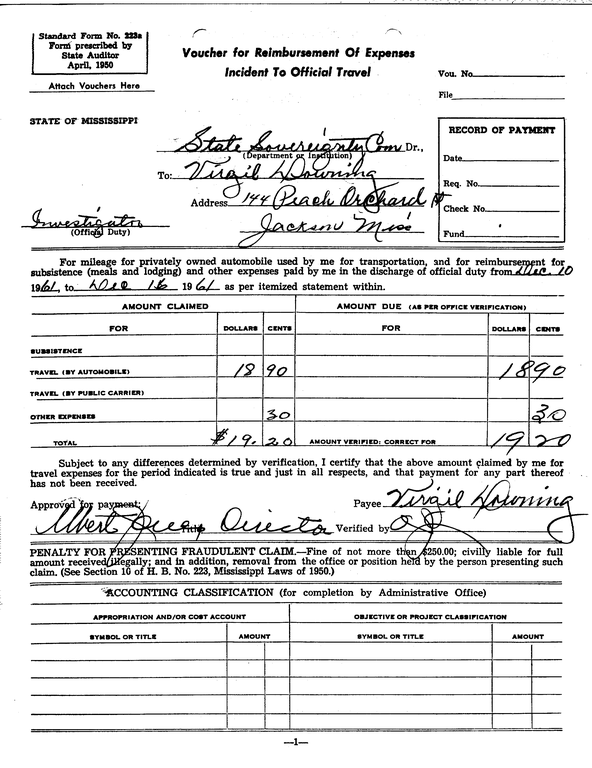 Standard Form No. 223a
Form prescribed by
State Auditor
April, 1950
Attach Vouchers Here
Voucher for Reimbursement Of Expenses
Incident To Official Travel
Vou. No.
File
STATE OF MISSISSIPPI
State Sovereignty Com Dr.,
(Department or Institution)
To: Virgil Downing
Address 144 Peach Orchard
Jackson Miss
Investigator
(Official Duty)
RECORD OF PAYMENT
Date
Req. No.
Check No.
Fund
For mileage for privately owned automobile used by me for transportation, and for reimbursement for
subsistence (meals and lodging) and other expenses paid by me in the discharge of official duty from Dec 10
1961, to Dec 16 1961 as per itemized statement within.
AMOUNT CLAIMED AMOUNT DUE (AS PER OFFICE VERIFICATION)
FOR DOLLARS CENTS FOR DOLLARS CENTS
SUBSISTENCE
TRAVEL (BY AUTOMOBILE) 18 90 18 90
TRAVEL (BY PUBLIC CARRIER)
OTHER EXPENSES 30 30
TOTAL $19. 20 AMOUNT VERIFIED: CORRECT FOR 19 20
Subject to any differences determined by verification, I certify that the above amount claimed by me for
travel expenses for the period indicated is true and just in all respects, and that payment for any part thereof
has not been received.
Approved for payment: Payee Virgil Downing
Albert Director Verified by
PENALTY FOR PRESENTING FRAUDULENT CLAIM.—Fine of not more than $250.00; civilly liable for full
amount received illegally; and in addition, removal from the office or position held by the person presenting such
claim. (See Section 10 of H. B. No. 223, Mississippi Laws of 1950.)
ACCOUNTING CLASSIFICATION (for completion by Administrative Office)
APPROPRIATION AND/OR COST ACCOUNT OBJECTIVE OR PROJECT CLASSIFICATION
SYMBOL OR TITLE AMOUNT SYMBOL OR TITLE AMOUNT
—1—